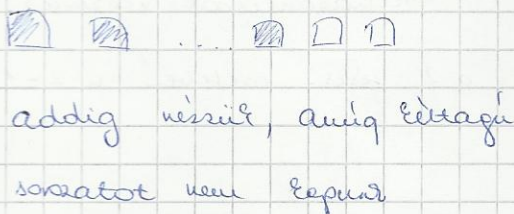 ....
addig nézzük, amíg kéttagú
sorozatot nem kapunk